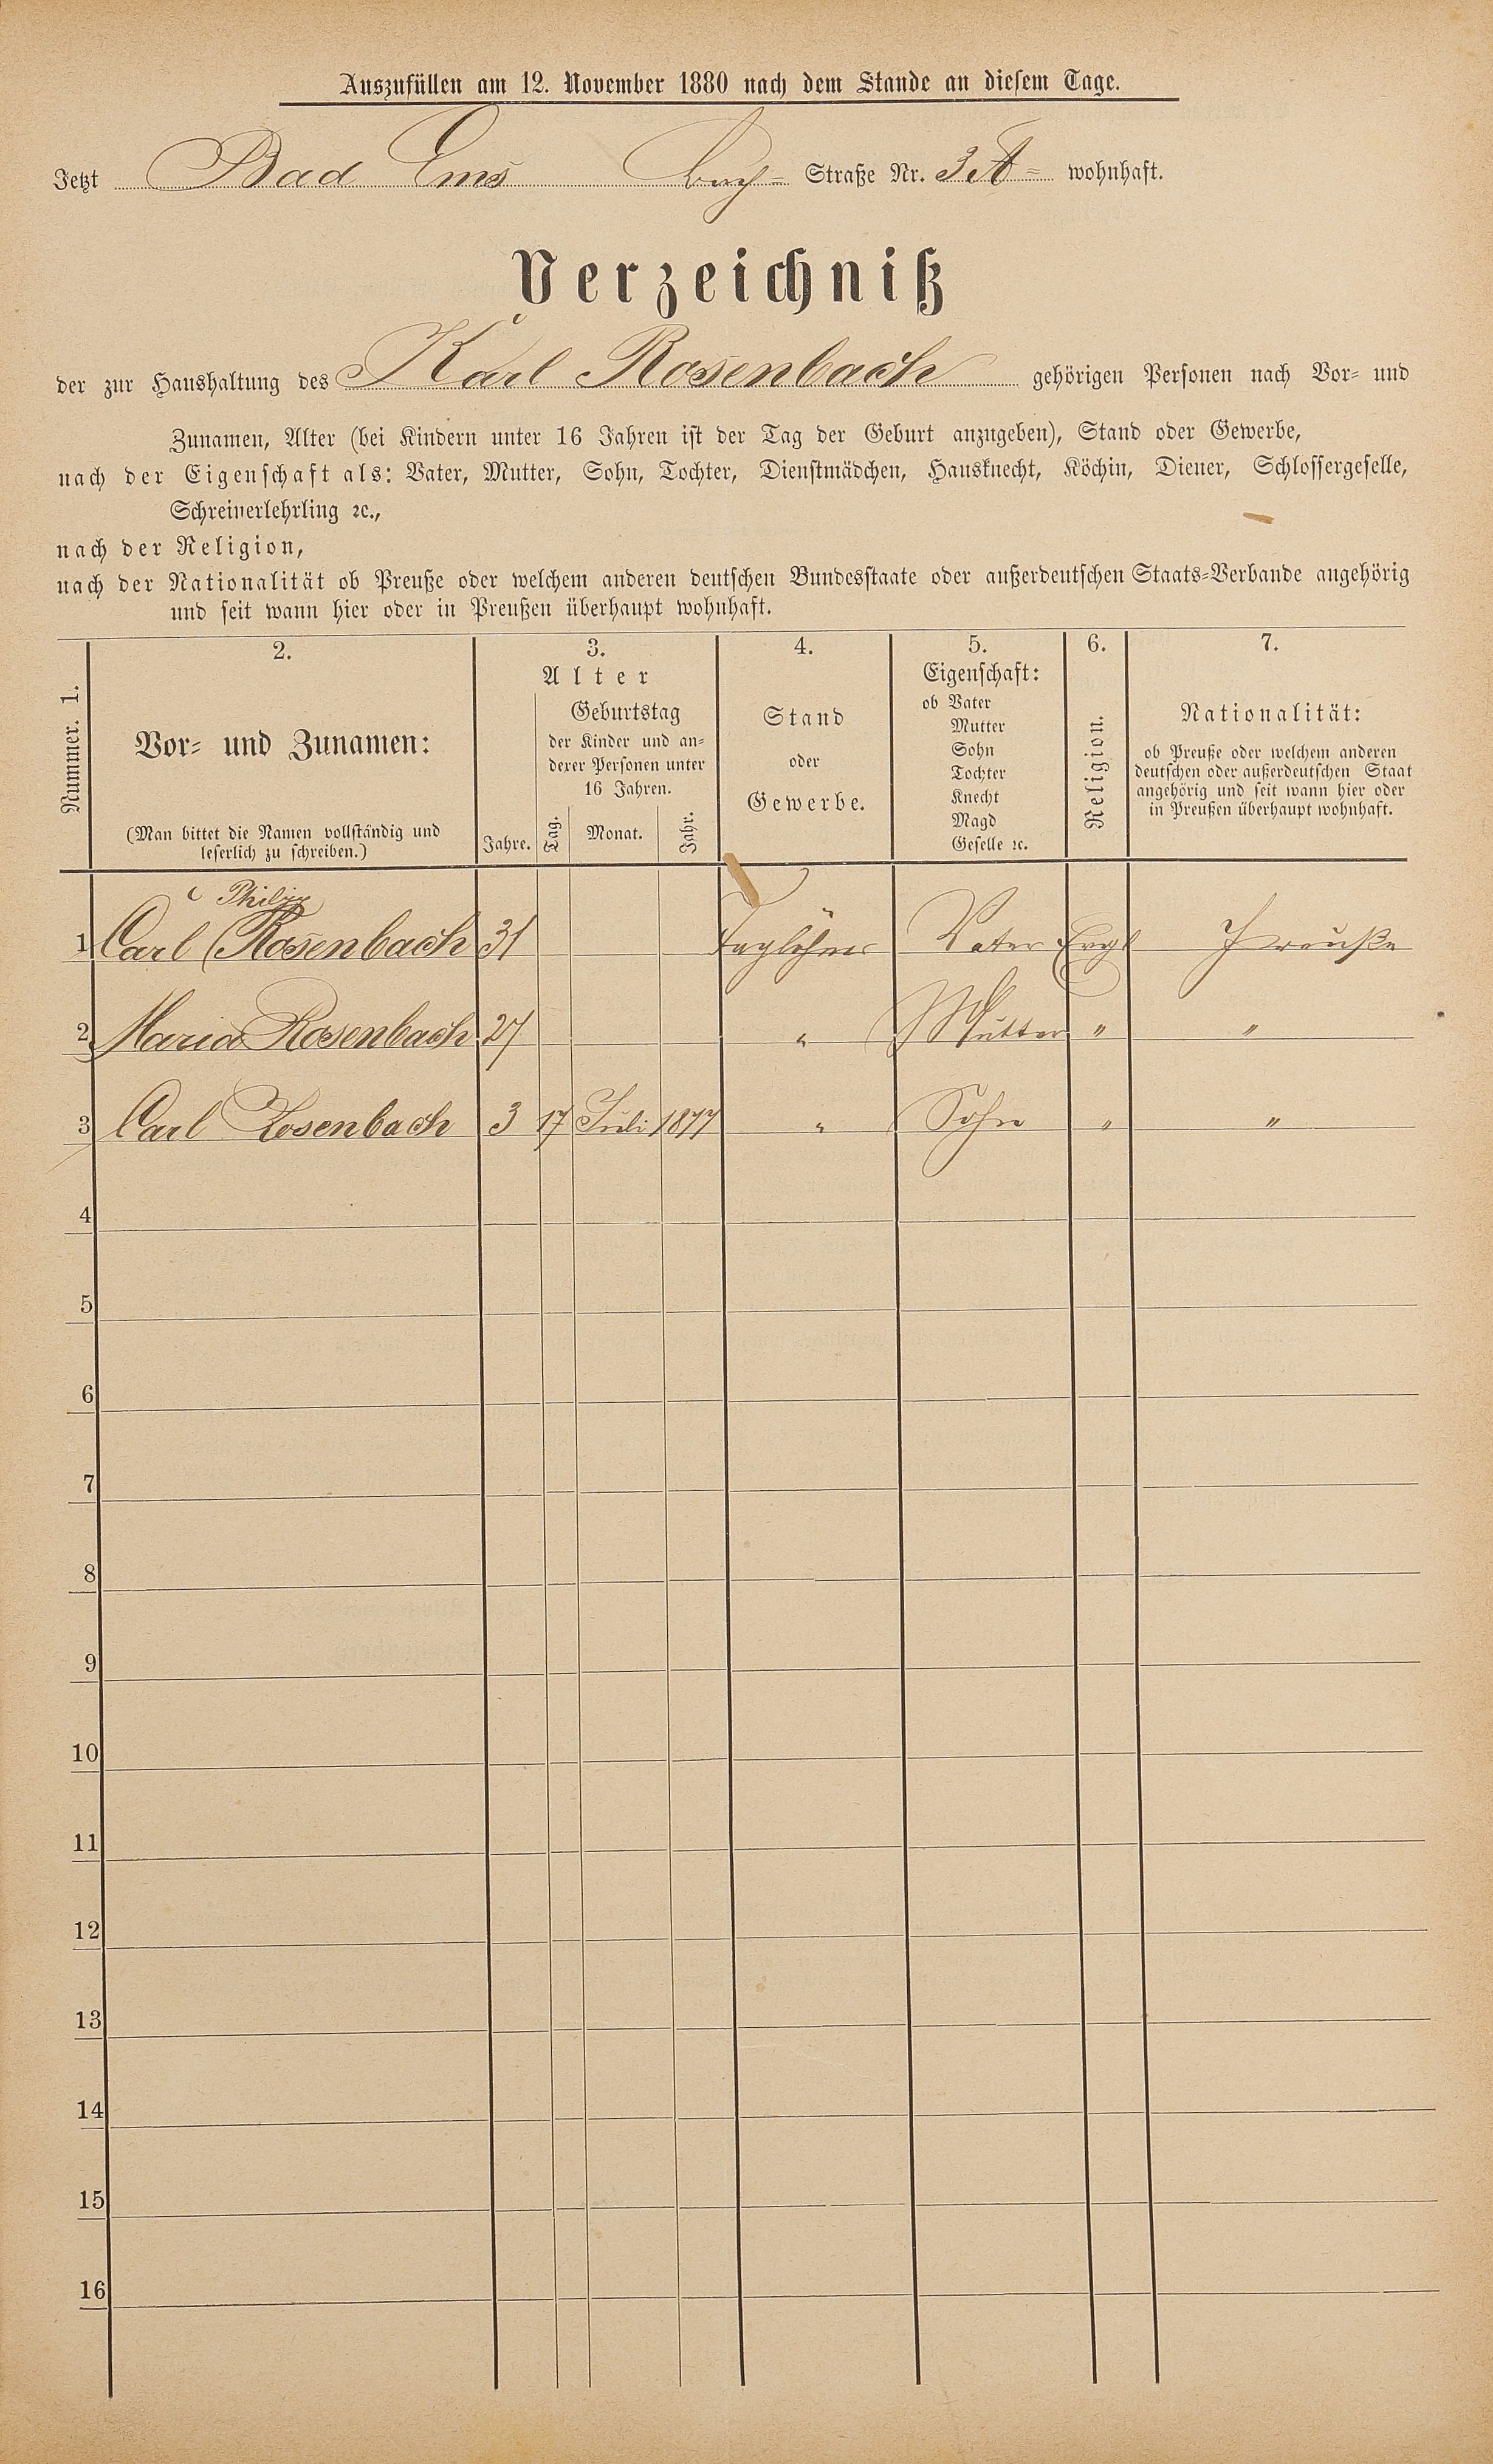 Auszufüllen am 12. November 1880 nach dem Stande an diesem Tage.
Jetzt Bad Ems Straße Nr. 3 A = wohnhaft.
Verzeichniß
der zur Haushaltung des Karl Rosenbach gehörigen Personen nach Vor- und
Zunamen, Alter (bei Kindern unter 16 Jahren ist der Tag der Geburt anzugeben), Stand oder Gewerbe,
nach der Eigenschaft als: Vater, Mutter, Sohn, Tochter, Dienstmädchen, Hausknecht, Köchin, Diener, Schlossergeselle,
Schreinerlehrling ꝛc.,
nach der Religion,
nach der Nationalität ob Preuße oder welchem anderen deutschen Bundesstaate oder außerdeutschen Staats-Verbande angehörig
und seit wann hier oder in Preußen überhaupt wohnhaft.
Nummer. 1.
2.
Vor- und Zunamen:
(Man bittet die Namen vollständig und
leserlich zu schreiben.)
3.
Alter
Jahre.
Geburtstag
der Kinder und an-
derer Personen unter
16 Jahren.
Tag. Monat. Jahr.
4.
Stand
oder
Gewerbe.
5.
Eigenschaft:
ob Vater
Mutter
Sohn
Tochter
Knecht
Magd
Geselle ꝛc.
6.
Religion.
7.
Nationalität:
ob Preuße oder welchem anderen
deutschen oder außerdeutschen Staat
angehörig und seit wann hier oder
in Preußen überhaupt wohnhaft.
Philipp
1 Carl Rosenbach 31 Taglöhner Vater Evgl Preuße
2 Maria Rosenbach 27 " Mutter " "
3 Carl Rosenbach 3 17 Juli 1877 " Sohn " "
4
5
6
7
8
9
10
11
12
13
14
15
16